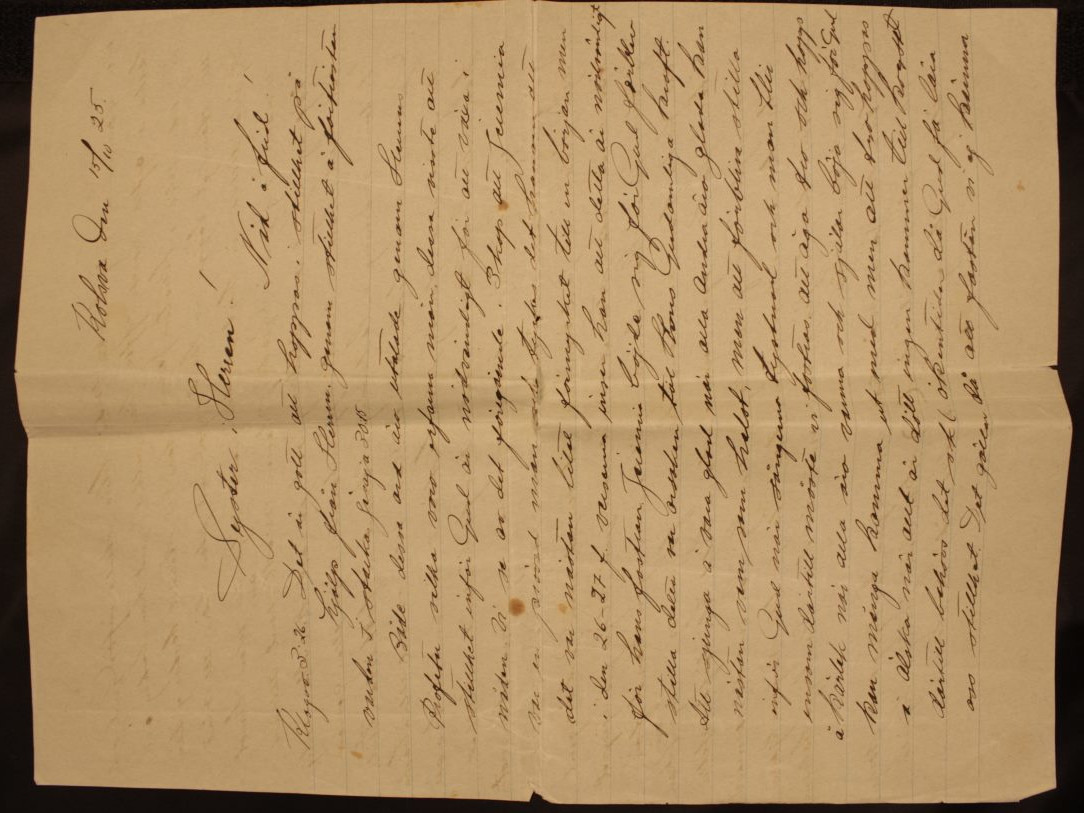 Kolsva den 15/10 25.
Syster i Herren!
Nåd å frid!
Klagov. 3:26. Det är gott att hoppas i stillhet på
hjälp från Herren. genom stillhet å förtröstan
varden I starka Jesaja 30.15
Både dessa ord äro utalade genom Herrens
Profeter vilka voro erfarna män, dessa visste att
stillhet inför Gud är nödvändigt för att växa i
nåden. Vi se av det föregående. 3 kap att Jeremia
var en prövad man och tycktes det honom att
det var nästan litet förmycket till en början men
i den 26-27 f. verserna inser han att detta är nödvändigt
för hans fostran Jeremia böjde sig för Gud förblev
stilla detta var orsaken till Hans Gudomliga kraft.
Att sjunga å vara glad när alla andra äro glada kan
nästan vem som hälst, men att förbliva stilla
inför Gud när sångerna tystnad och man blir
ensom därtill måste vi fostras. att äga tro och hopp
å kärlek när alla äro varma och själar böja sig för Gud
kan många komma ut med men att tro hoppas
å älska när allt är dött ingen kommer till korset
därtill behövs det sk ökentider då Gud få lära
oss stillhet. Det gäller då att fastän vi ej känna